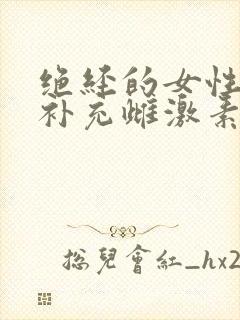 绝经的女性
补充雌激素
总兒會紅_hx2